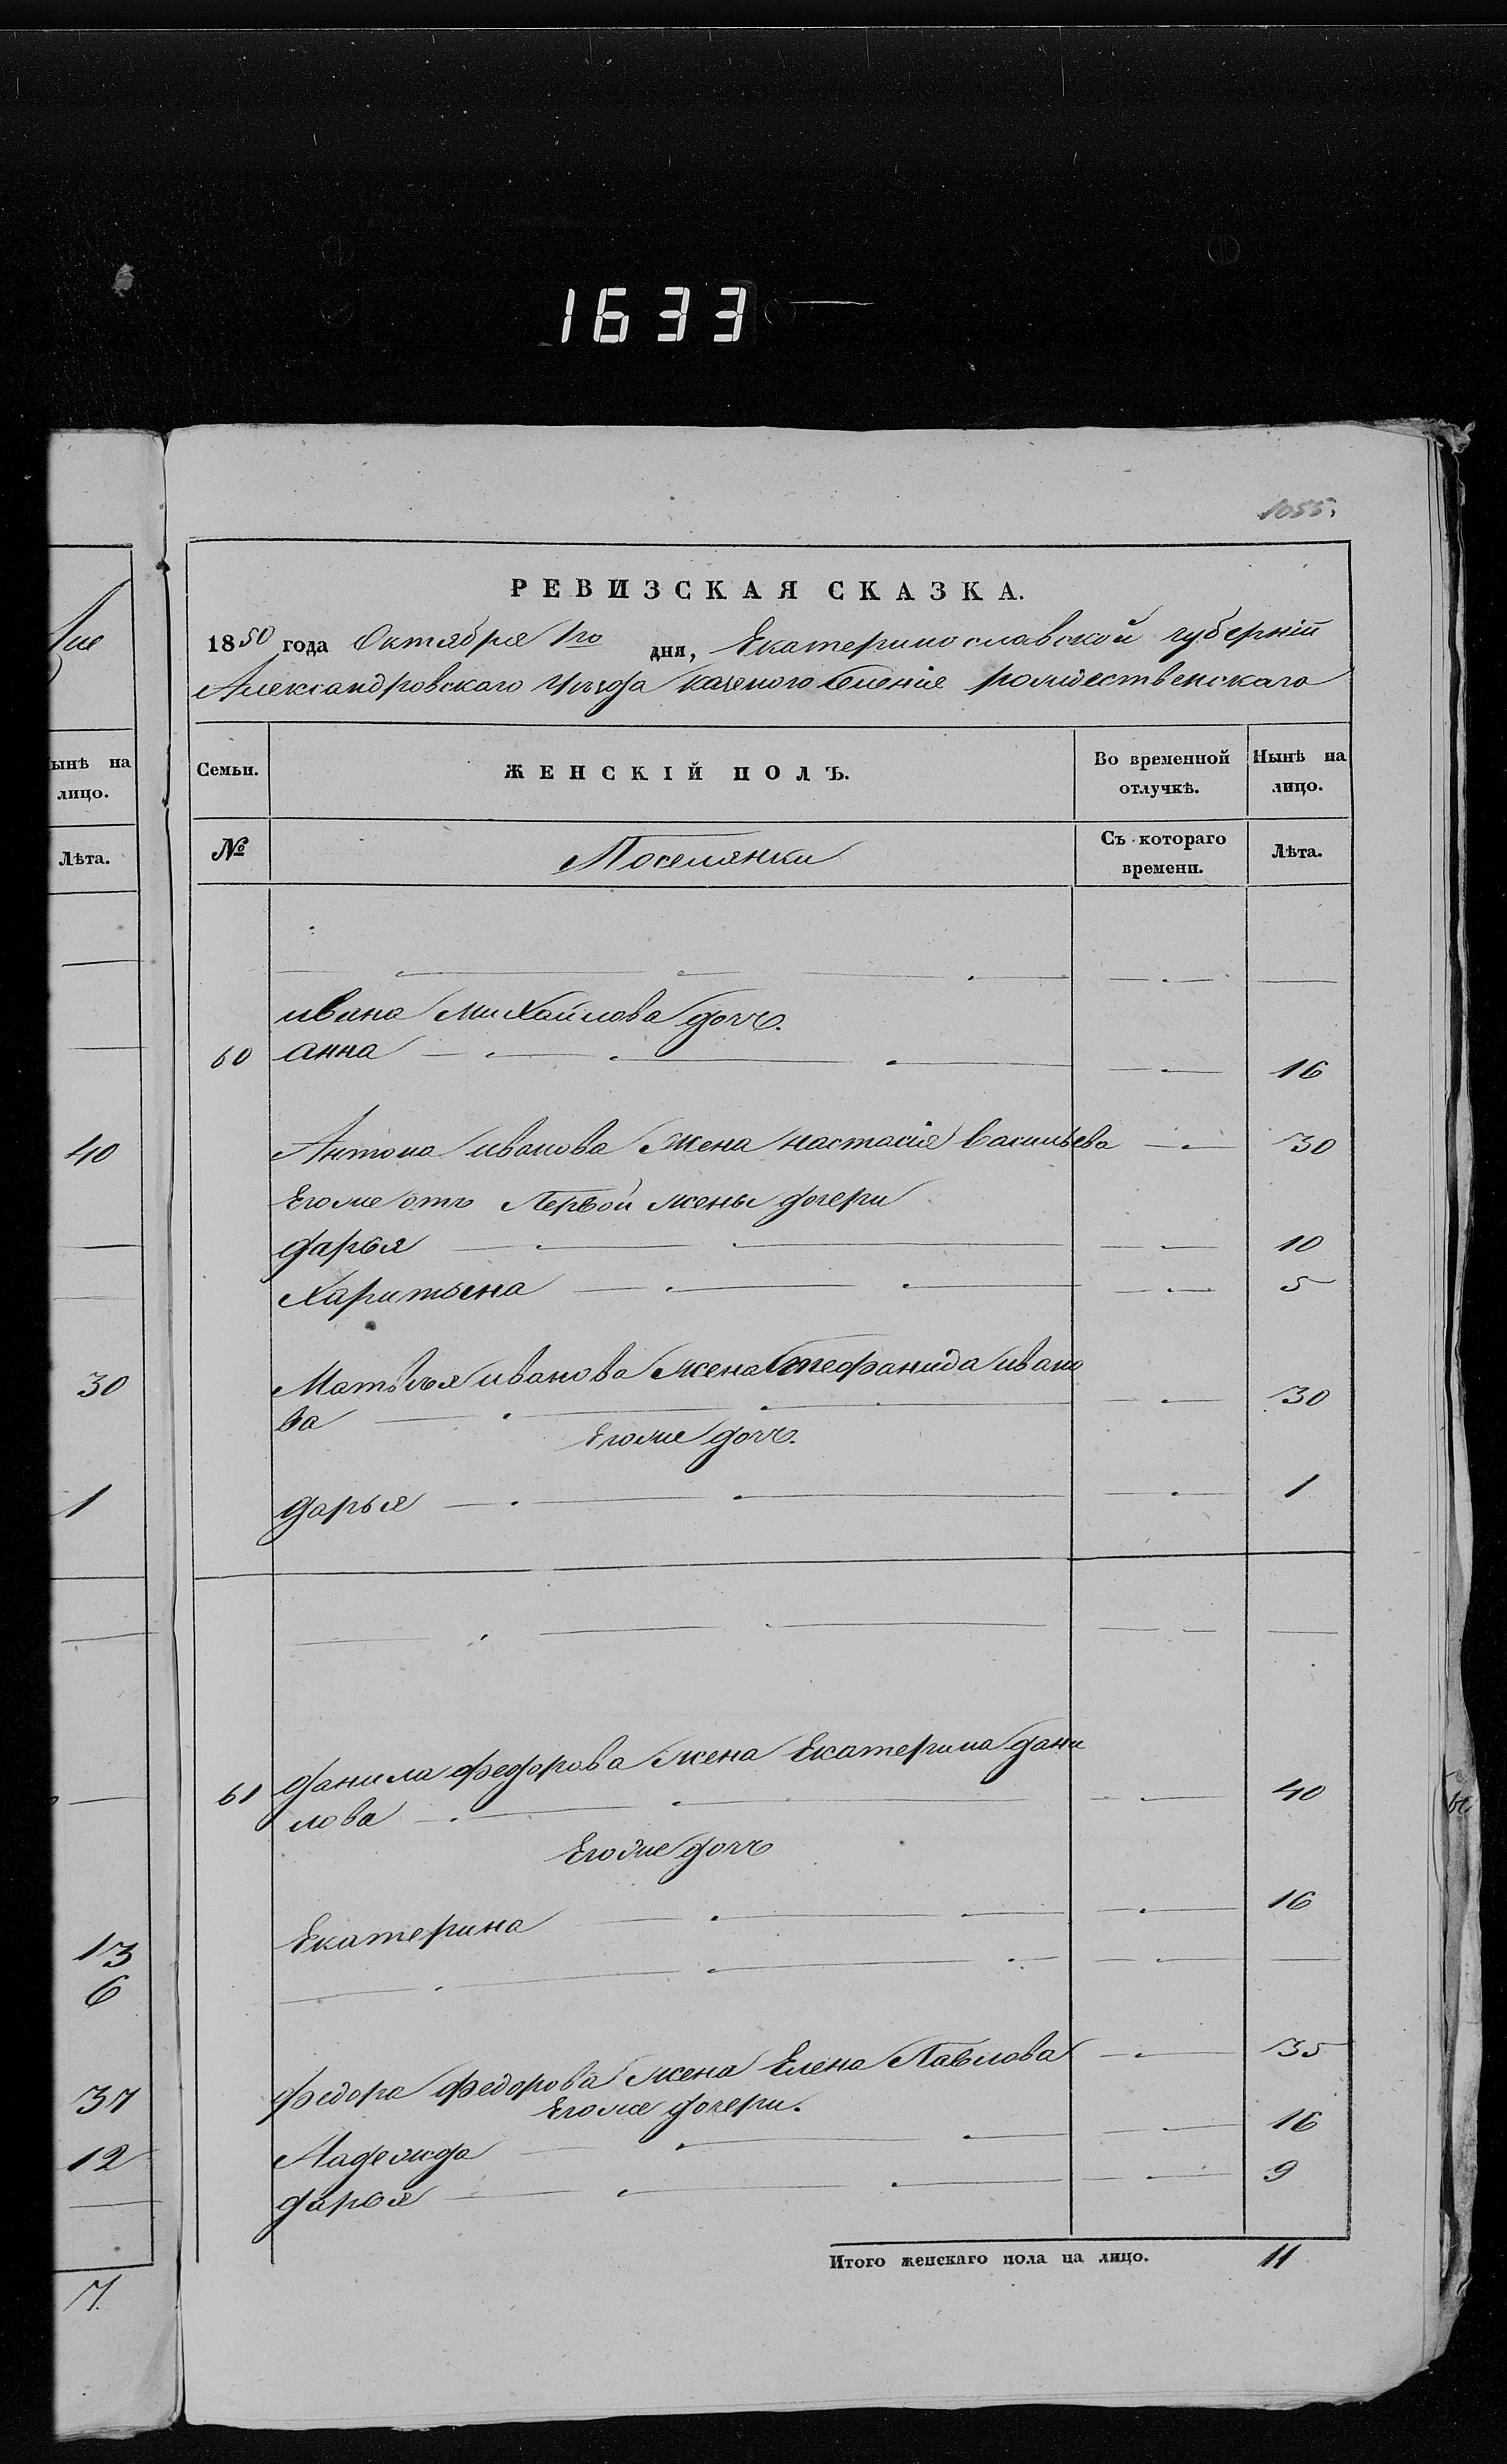 1633
1055.
РЕВИЗСКАЯ СКАЗКА.
1850 года Октября 1го дня, Екатеринославской губерній
Александровскаго уѣзда казеного селеніе рождественскаго
Семьи. ЖЕНСКІЙ ПОЛЪ. Во временной отлучкѣ. Нынѣ на лицо.
№ Поселянки Съ котораго времени. Лѣта.
ивана Михайлова дочь.
60 анна 16
Антона иванова жена настасія васильева 30
Егоже отъ Первой жены дочери
дарья 10
Харитьена 5
Матвѣя иванова жена Стефанида ивано
ва 30
Егоже дочь.
дарья 1
61 данила федорова жена Екатерина дани
лова 40
Егоже дочь
Екатерина 16
федора федорова жена Елена Павлова 35
Егоже дочери.
Надежда 16
дарья 9
Итого женскаго пола на лицо. 11
ынѣ на
лицо.
Лѣта.
40
30
1
13
6
37
12
7.